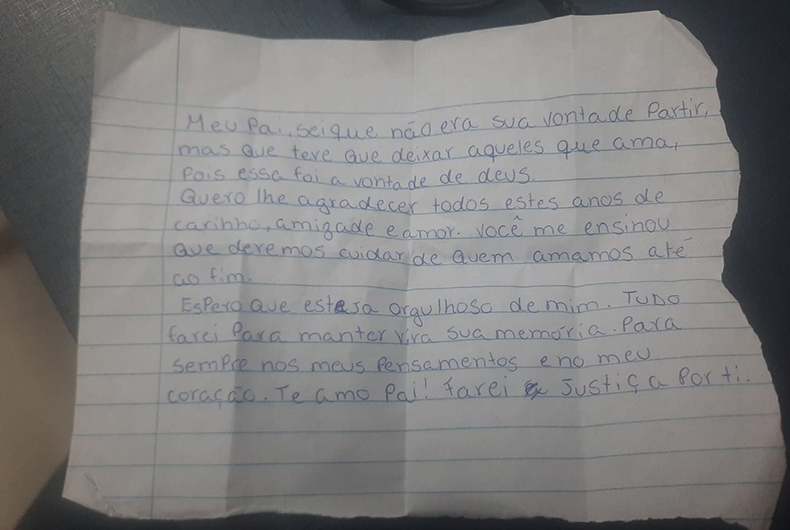 Meu Pai, sei que não era sua vontade Partir,
mas que teve que deixar aqueles que ama,
Pois essa foi a vontade de deus.
Quero lhe agradecer todos estes anos de
carinho, amizade e amor. Você me ensinou
que devemos cuidar de quem amamos até
ao fim.
Espero que esteja orgulhoso de mim. Tudo
farei Para manter viva sua memória. Para
sempre nos meus Pensamentos e no meu
coração. Te amo Pai! farei Justiça Por ti.